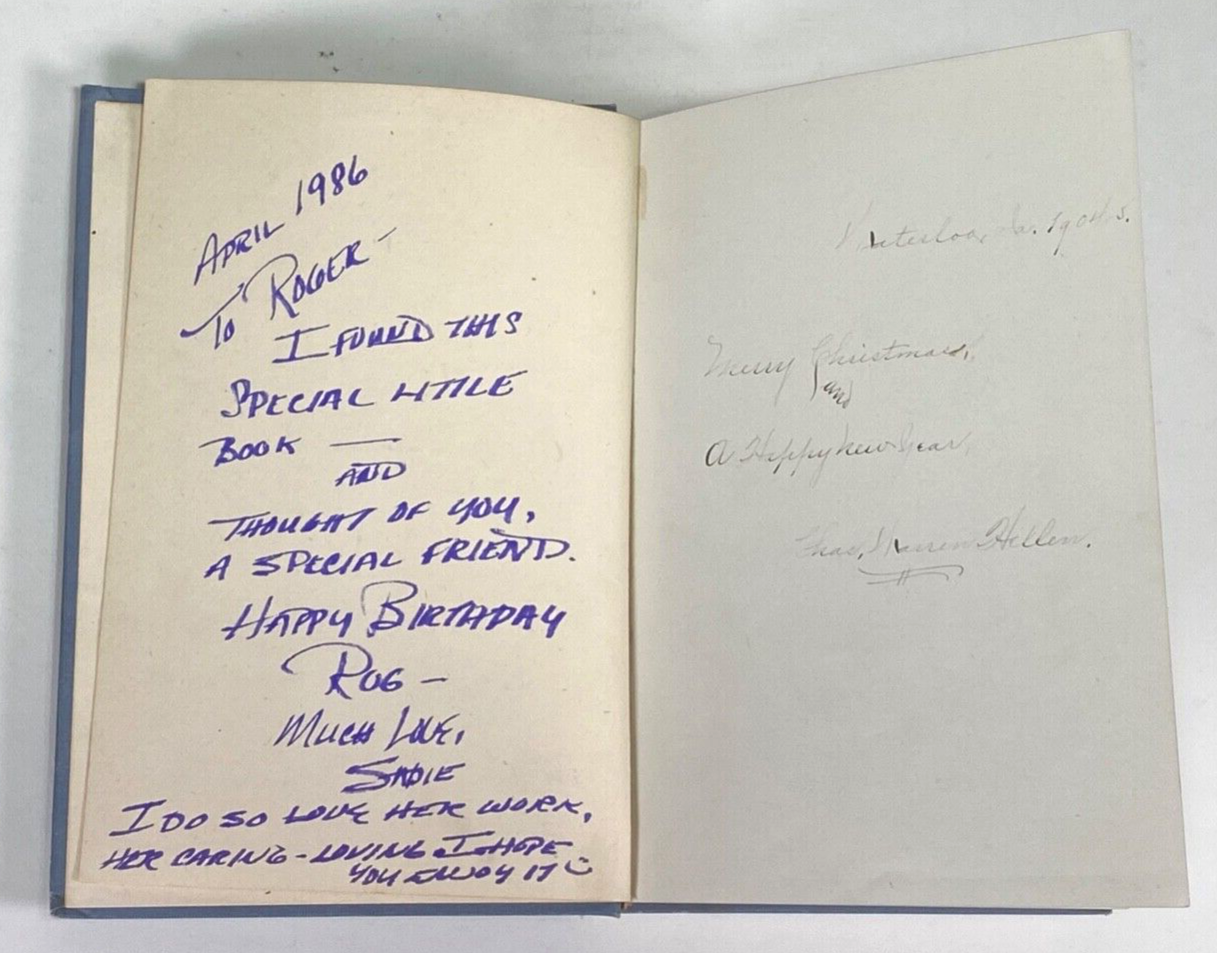 APRIL 1986
TO ROGER -
I FOUND THIS
SPECIAL LITTLE
BOOK —
AND
THOUGHT OF YOU,
A SPECIAL FRIEND.
HAPPY BIRTHDAY
ROG -
MUCH LOVE,
SADIE
I DO SO LOVE HER WORK,
HER CARING - LOVING I HOPE
YOU ENJOY IT
Waterloo, Ia.
Merry Christmas,
and
a Happy New Year,
Chas. Warren Hellen.